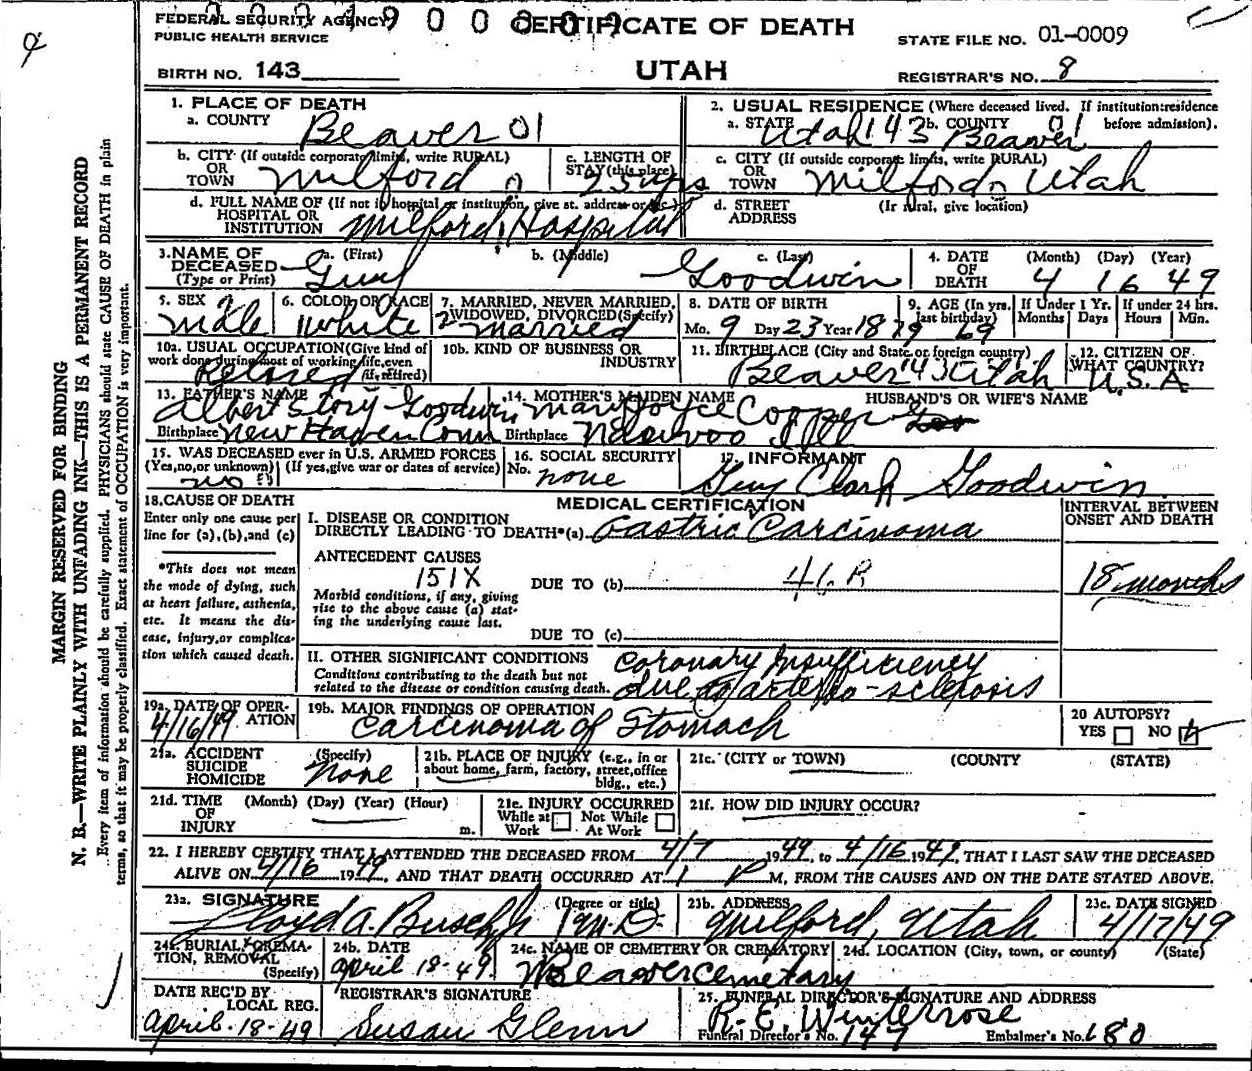 FEDERAL SECURITY AGENCY
PUBLIC HEALTH SERVICE
CERTIFICATE OF DEATH
STATE FILE NO. 01-0009
BIRTH NO. 143
UTAH
REGISTRAR'S NO. 8
MARGIN RESERVED FOR BINDING
N. B.—WRITE PLAINLY WITH UNFADING INK—THIS IS A PERMANENT RECORD
Every item of information should be carefully supplied. PHYSICIANS should state CAUSE OF DEATH in plain
terms, so that it may be properly classified. Exact statement of OCCUPATION is very important.
1. PLACE OF DEATH
a. COUNTY Beaver 01
2. USUAL RESIDENCE (Where deceased lived. If institution: residence before admission).
a. STATE Utah 143 b. COUNTY 01 Beaver
b. CITY (If outside corporate limits, write RURAL) OR TOWN Milford
c. LENGTH OF STAY (this place) 25 yrs
c. CITY (If outside corporate limits, write RURAL) OR TOWN Milford Utah
d. FULL NAME OF (If not in hospital or institution, give st. address or loc.) HOSPITAL OR INSTITUTION Milford Hospital
d. STREET ADDRESS (If rural, give location)
3. NAME OF DECEASED (Type or Print) a. (First) Guy b. (Middle) c. (Last) Goodwin
4. DATE OF DEATH (Month) (Day) (Year) 4 16 49
5. SEX Male
6. COLOR OR RACE White
7. MARRIED, NEVER MARRIED, WIDOWED, DIVORCED (Specify) 2 Married
8. DATE OF BIRTH Mo. 9 Day 23 Year 1879
9. AGE (In yrs. last birthday) 69 If Under 1 Yr. Months Days If under 24 hrs. Hours Min.
10a. USUAL OCCUPATION (Give kind of work done during most of working life, even if retired) Retired
10b. KIND OF BUSINESS OR INDUSTRY
11. BIRTHPLACE (City and State or foreign country) Beaver 43 Utah
12. CITIZEN OF WHAT COUNTRY? U.S.A
13. FATHER'S NAME Albert Story Goodwin
Birthplace New Haven Conn
14. MOTHER'S MAIDEN NAME Mary Joyce Cooper
Birthplace Nauvoo Ill
HUSBAND'S OR WIFE'S NAME
15. WAS DECEASED ever in U.S. ARMED FORCES (Yes, no, or unknown) (If yes, give war or dates of service) no
16. SOCIAL SECURITY No. none
17. INFORMANT Guy Clark Goodwin
18. CAUSE OF DEATH
Enter only one cause per line for (a), (b), and (c)
*This does not mean the mode of dying, such as heart failure, asthenia, etc. It means the disease, injury, or complication which caused death.
MEDICAL CERTIFICATION
INTERVAL BETWEEN ONSET AND DEATH
I. DISEASE OR CONDITION DIRECTLY LEADING TO DEATH*(a) Gastric Carcinoma
ANTECEDENT CAUSES
151X
DUE TO (b)
18 months
Morbid conditions, if any, giving rise to the above cause (a) stating the underlying cause last.
DUE TO (c)
II. OTHER SIGNIFICANT CONDITIONS
Conditions contributing to the death but not related to the disease or condition causing death.
Coronary Insufficiency due to arterio-sclerosis
19a. DATE OF OPERATION 4/16/49
19b. MAJOR FINDINGS OF OPERATION Carcinoma of Stomach
20 AUTOPSY? YES NO
21a. ACCIDENT SUICIDE HOMICIDE (Specify) None
21b. PLACE OF INJURY (e.g., in or about home, farm, factory, street, office bldg., etc.)
21c. (CITY or TOWN) (COUNTY) (STATE)
21d. TIME OF INJURY (Month) (Day) (Year) (Hour) m.
21e. INJURY OCCURRED While at Work Not While At Work
21f. HOW DID INJURY OCCUR?
22. I HEREBY CERTIFY THAT I ATTENDED THE DECEASED FROM 4/7 1949, to 4/16 1949, THAT I LAST SAW THE DECEASED
ALIVE ON 4/16 1949, AND THAT DEATH OCCURRED AT 1 P M, FROM THE CAUSES AND ON THE DATE STATED ABOVE.
23a. SIGNATURE (Degree or title) Lloyd A. Busch Jr M.D.
23b. ADDRESS Milford, Utah
23c. DATE SIGNED 4/17/49
24a. BURIAL, CREMATION, REMOVAL (Specify)
24b. DATE April 18-49
24c. NAME OF CEMETERY OR CREMATORY Beaver Cemetary
24d. LOCATION (City, town, or county) (State)
DATE REC'D BY LOCAL REG. April-18-49
REGISTRAR'S SIGNATURE Susan Glenn
25. FUNERAL DIRECTOR'S SIGNATURE AND ADDRESS
R. E. Winterrose
Funeral Director's No. 147 Embalmer's No. 680